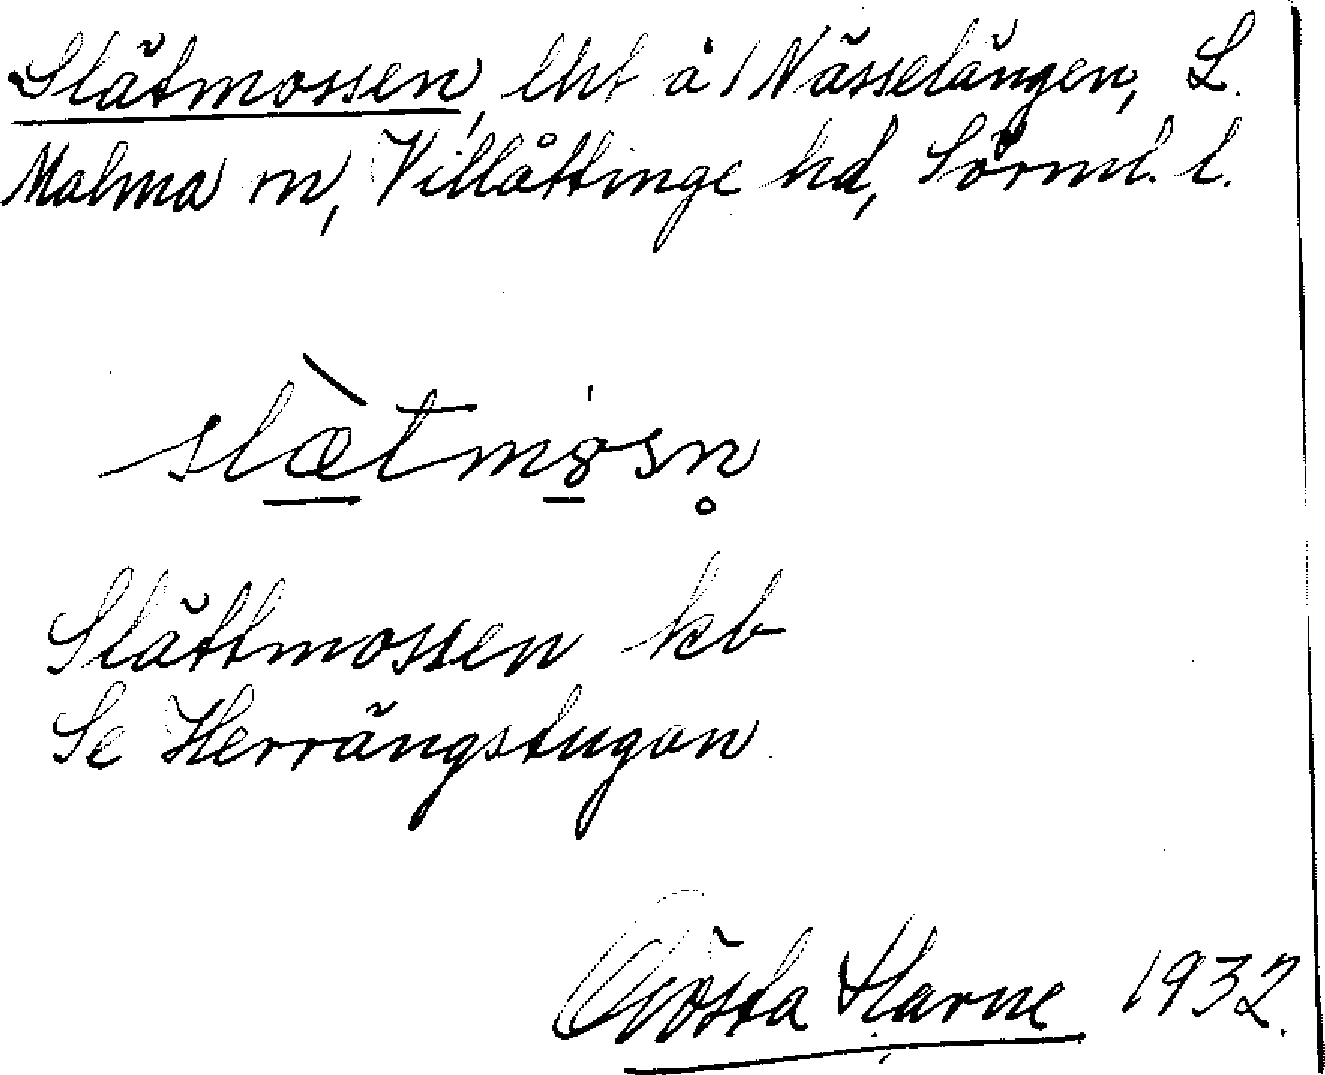 Slätmossen, lht å / Nässelängen, L.
Malma sn, Villåttinge hd, Sörml. l.
slæ̀tmòsn̥
Slättmossen kb
Se Herrängstugan.
Gösta Harne 1932.